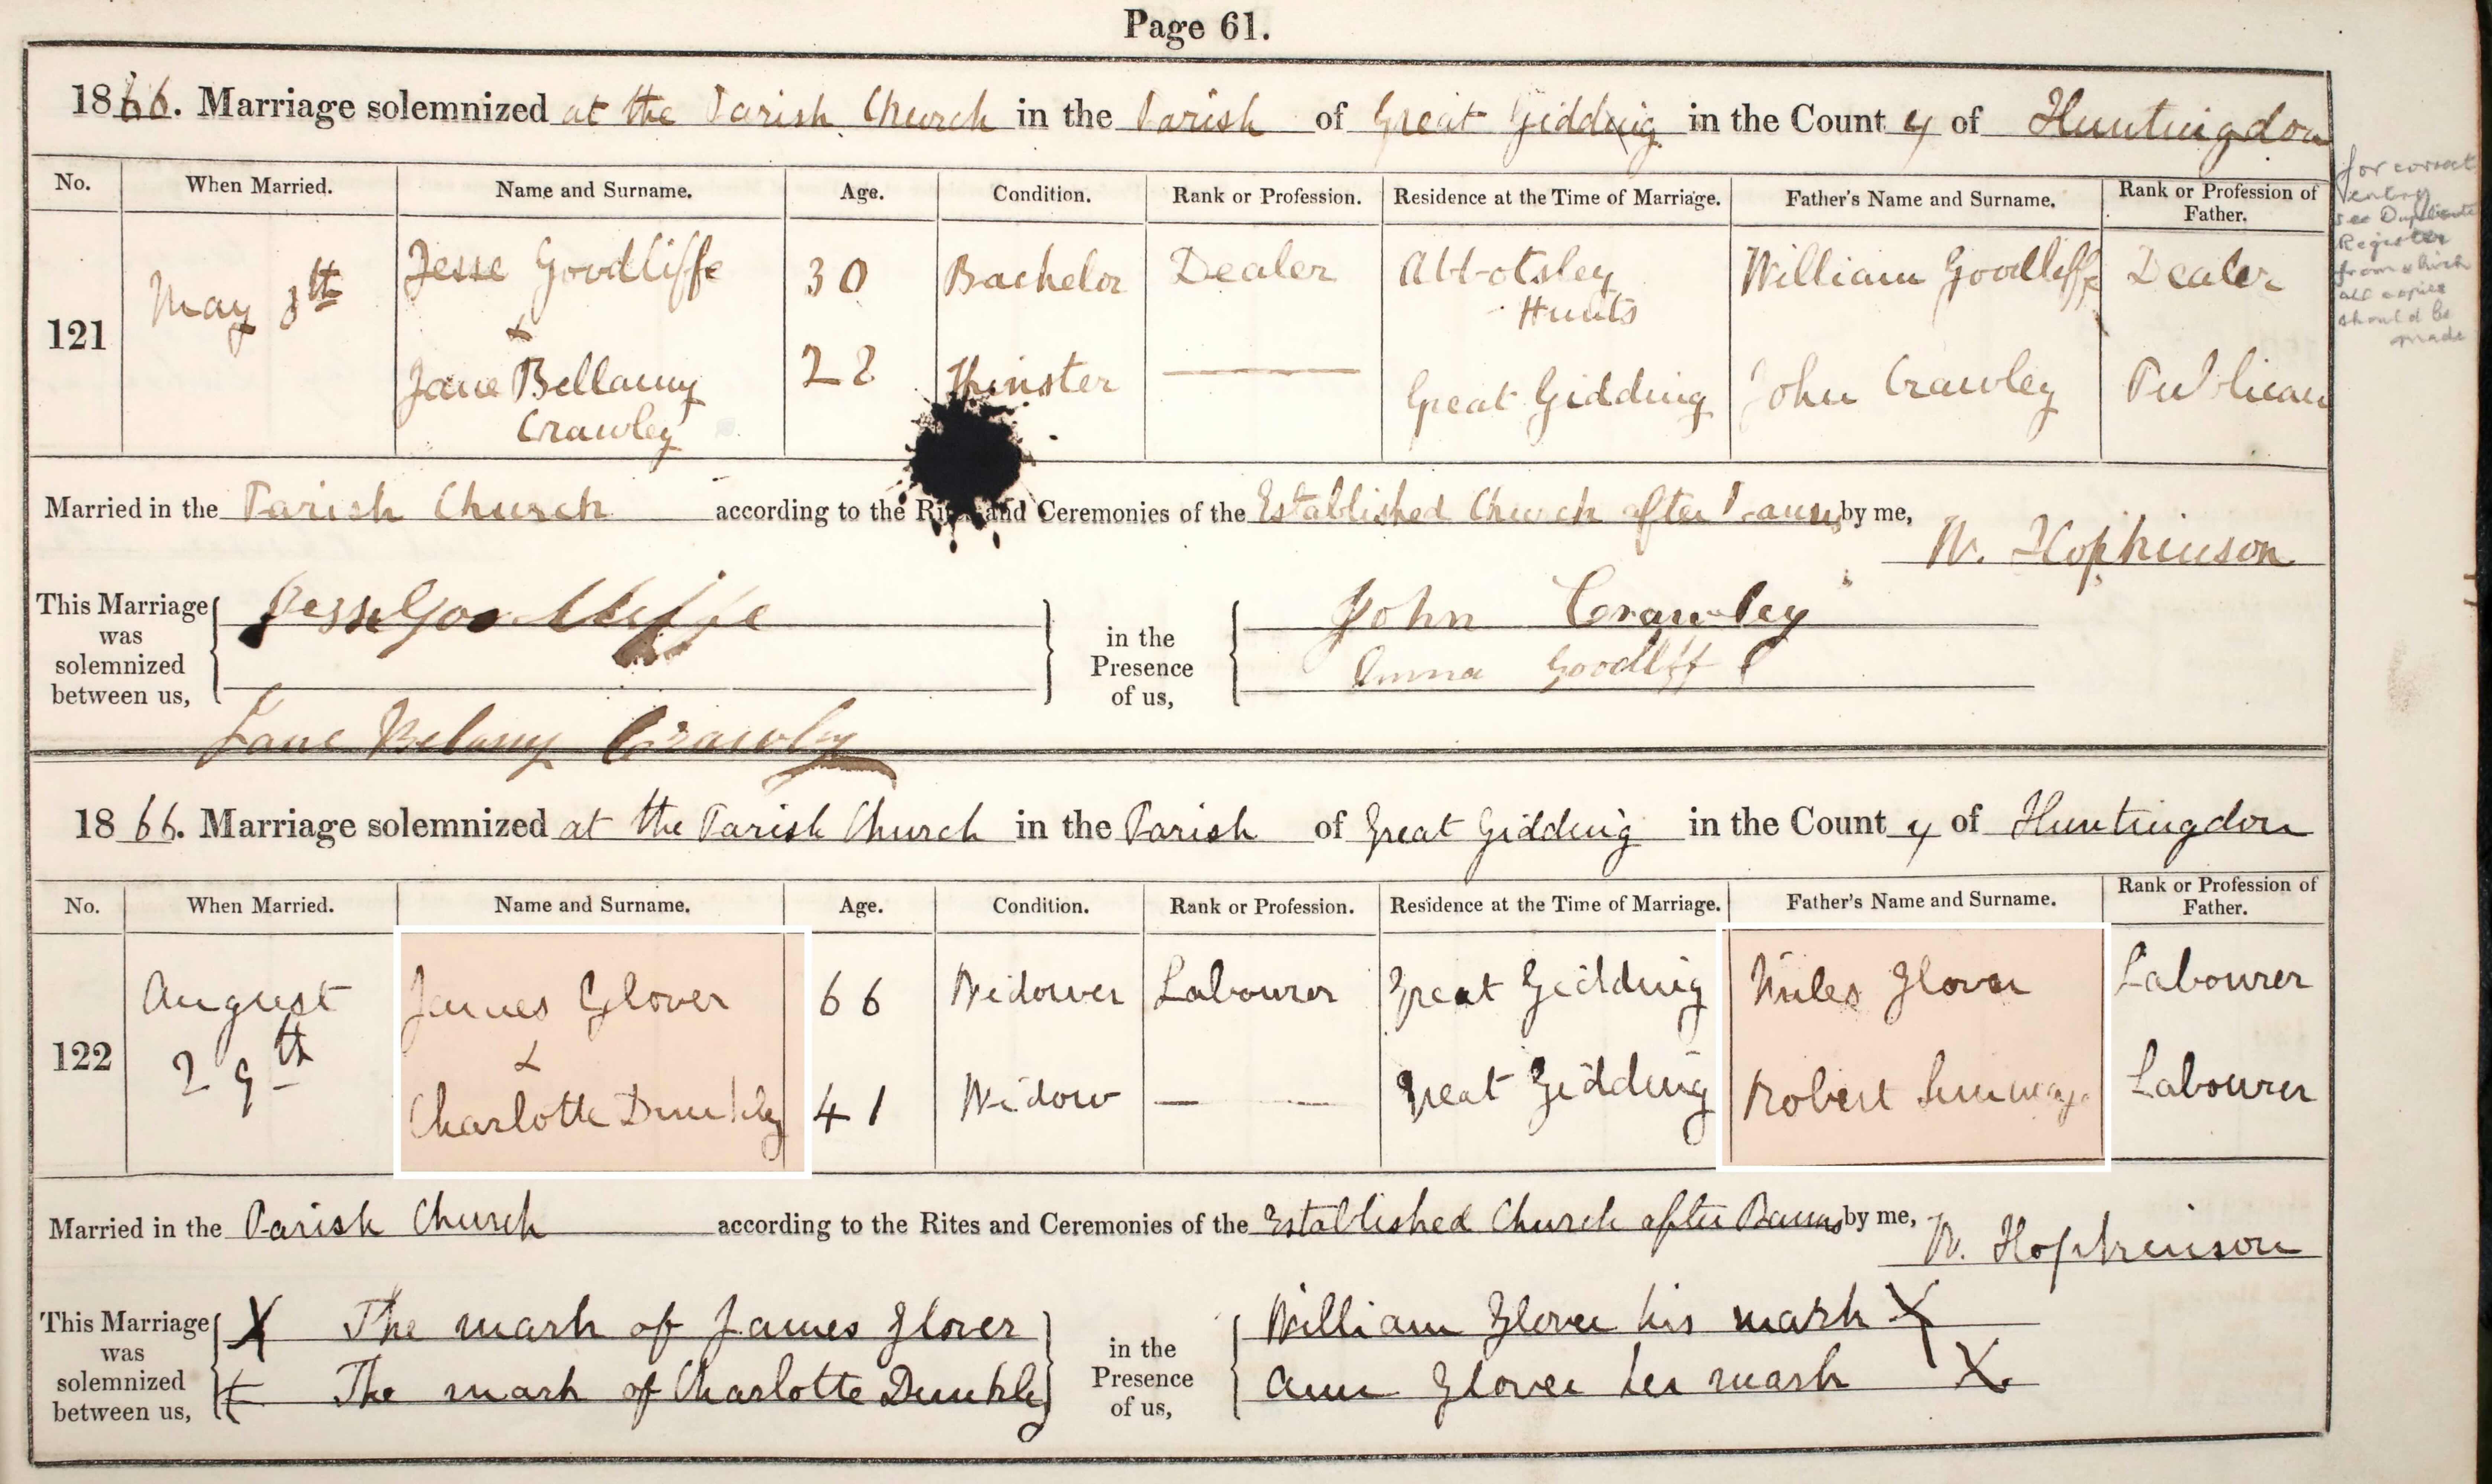 Page 61.
1866. Marriage solemnized at the Parish Church in the Parish of Great Gidding in the County of Huntingdon
No. When Married. Name and Surname. Age. Condition. Rank or Profession. Residence at the Time of Marriage. Father's Name and Surname. Rank or Profession of Father.
for correct
entry
see Duplicate
Register
from which
all copies
should be
made
121 May 8th Jesse Goodliffe 30 Bachelor Dealer Abbotsley Hunts William Goodliffe Dealer
&
Jane Bellamy Crawley 22 Spinster — Great Gidding John Crawley Publican
Married in the Parish Church according to the Rites and Ceremonies of the Established Church after Banns by me,
W. Hopkinson
This Marriage was solemnized between us, Jesse Goodliffe in the Presence of us, John Crawley
Anna Goodliff
Jane Belamy Crawley
1866. Marriage solemnized at the Parish Church in the Parish of Great Gidding in the County of Huntingdon
No. When Married. Name and Surname. Age. Condition. Rank or Profession. Residence at the Time of Marriage. Father's Name and Surname. Rank or Profession of Father.
122 August 29th James Glover 66 Widower Labourer Great Gidding Miles Glover Labourer
&
Charlotte Dunkley 41 Widow — Great Gidding Robert Labourer
Married in the Parish Church according to the Rites and Ceremonies of the Established Church after Banns by me,
W. Hopkinson
This Marriage was solemnized between us, X The mark of James Glover in the Presence of us, William Glover his mark X
The mark of Charlotte Dunkley Ann Glover her mark X